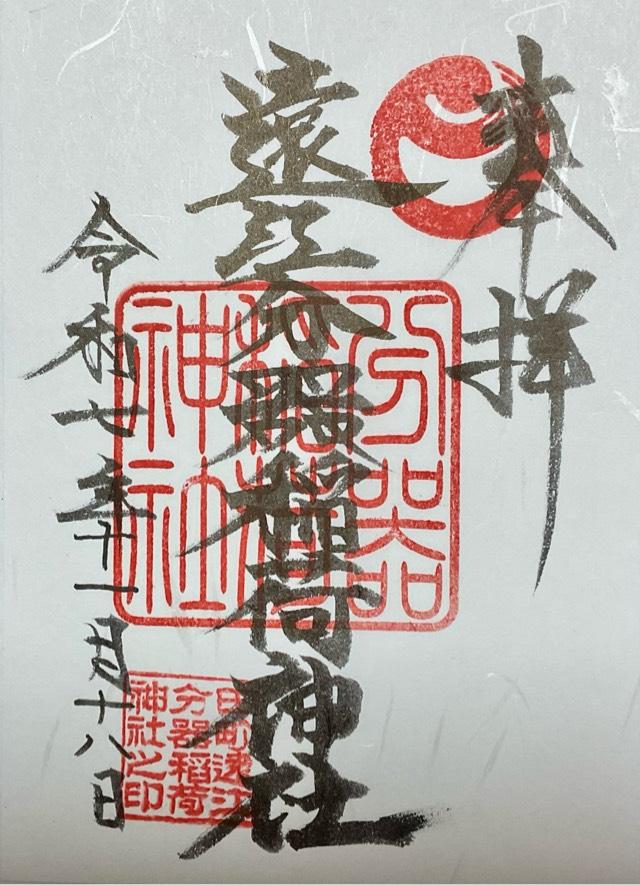 奉拝
遠江分器稲荷神社
令和七年十一月十八日
分器
稲荷
神社
田町遠江
分器稲荷
神社之印